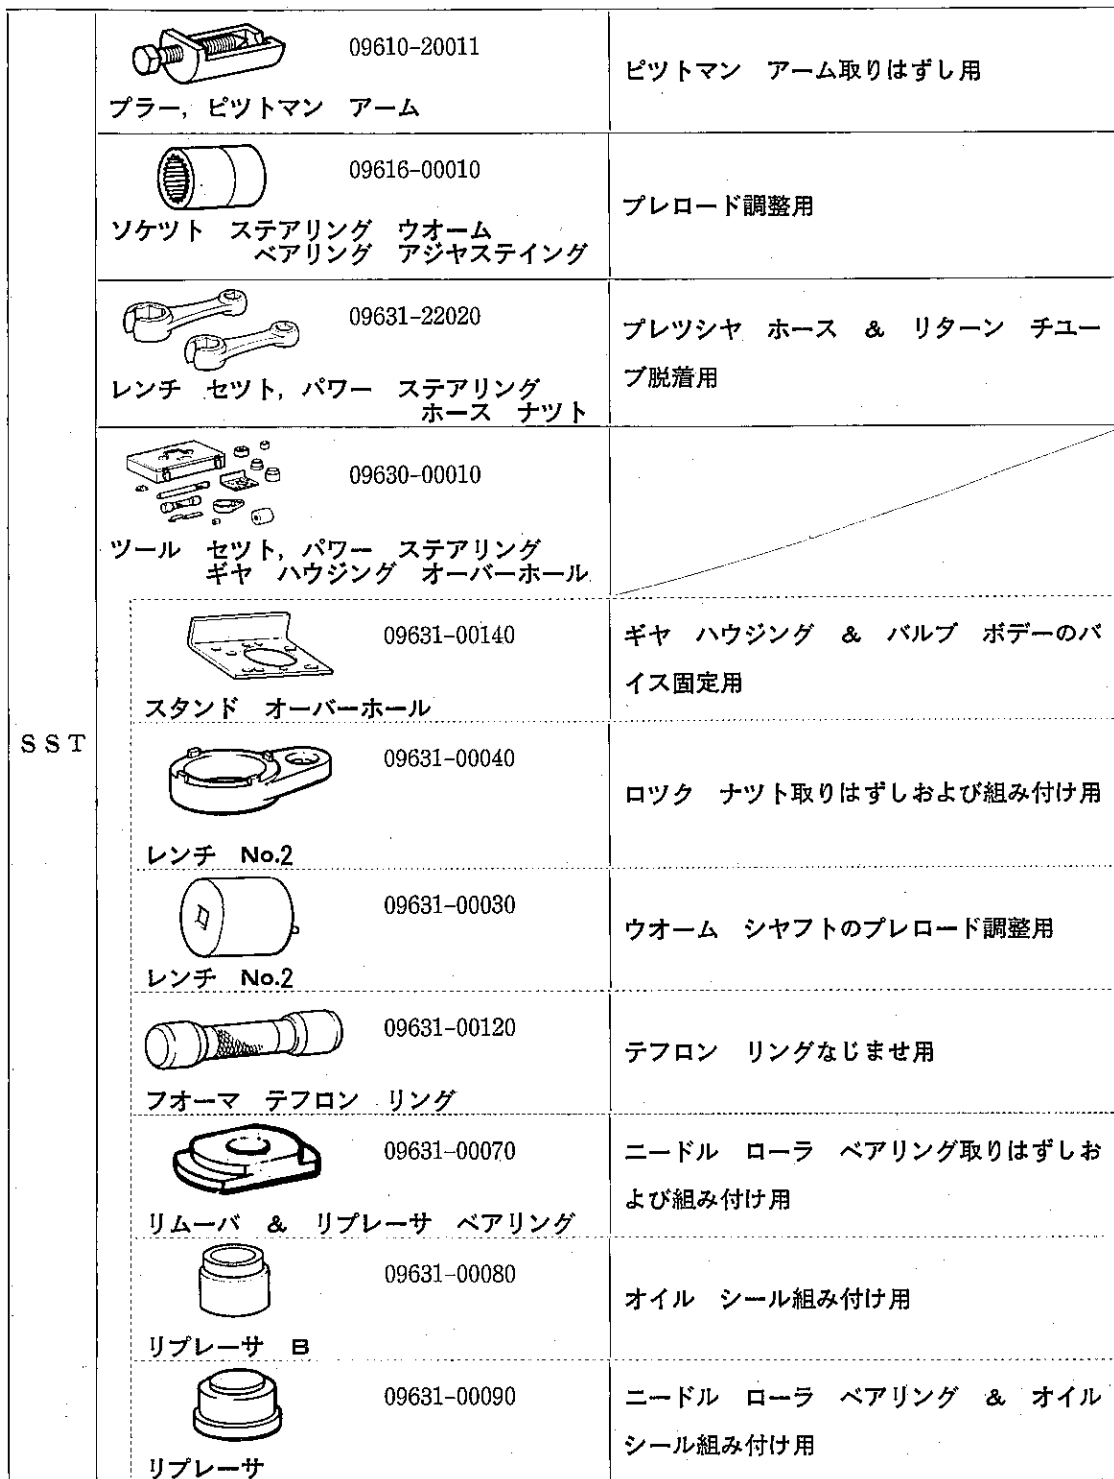 09610-20011
プラー, ピツトマン　アーム
ピツトマン　アーム取りはずし用
09616-00010
ソケツト　ステアリング　ウオーム
ベアリング　アジヤステイング
プレロード調整用
09631-22020
レンチ　セツト, パワー　ステアリング
ホース　ナツト
プレツシヤ　ホース　&　リターン　チユー
ブ脱着用
09630-00010
ツール　セツト, パワー　ステアリング
ギヤ　ハウジング　オーバーホール
SST
09631-00140
スタンド　オーバーホール
ギヤ　ハウジング　&　バルブ　ボデーのバ
イス固定用
09631-00040
レンチ　No.2
ロツク　ナツト取りはずしおよび組み付け用
09631-00030
レンチ　No.2
ウオーム　シヤフトのプレロード調整用
09631-00120
フオーマ　テフロン　リング
テフロン　リングなじませ用
09631-00070
リムーバ　&　リプレーサ　ベアリング
ニードル　ローラ　ベアリング取りはずしお
よび組み付け用
09631-00080
リプレーサ　B
オイル　シール組み付け用
09631-00090
リプレーサ
ニードル　ローラ　ベアリング　&　オイル
シール組み付け用